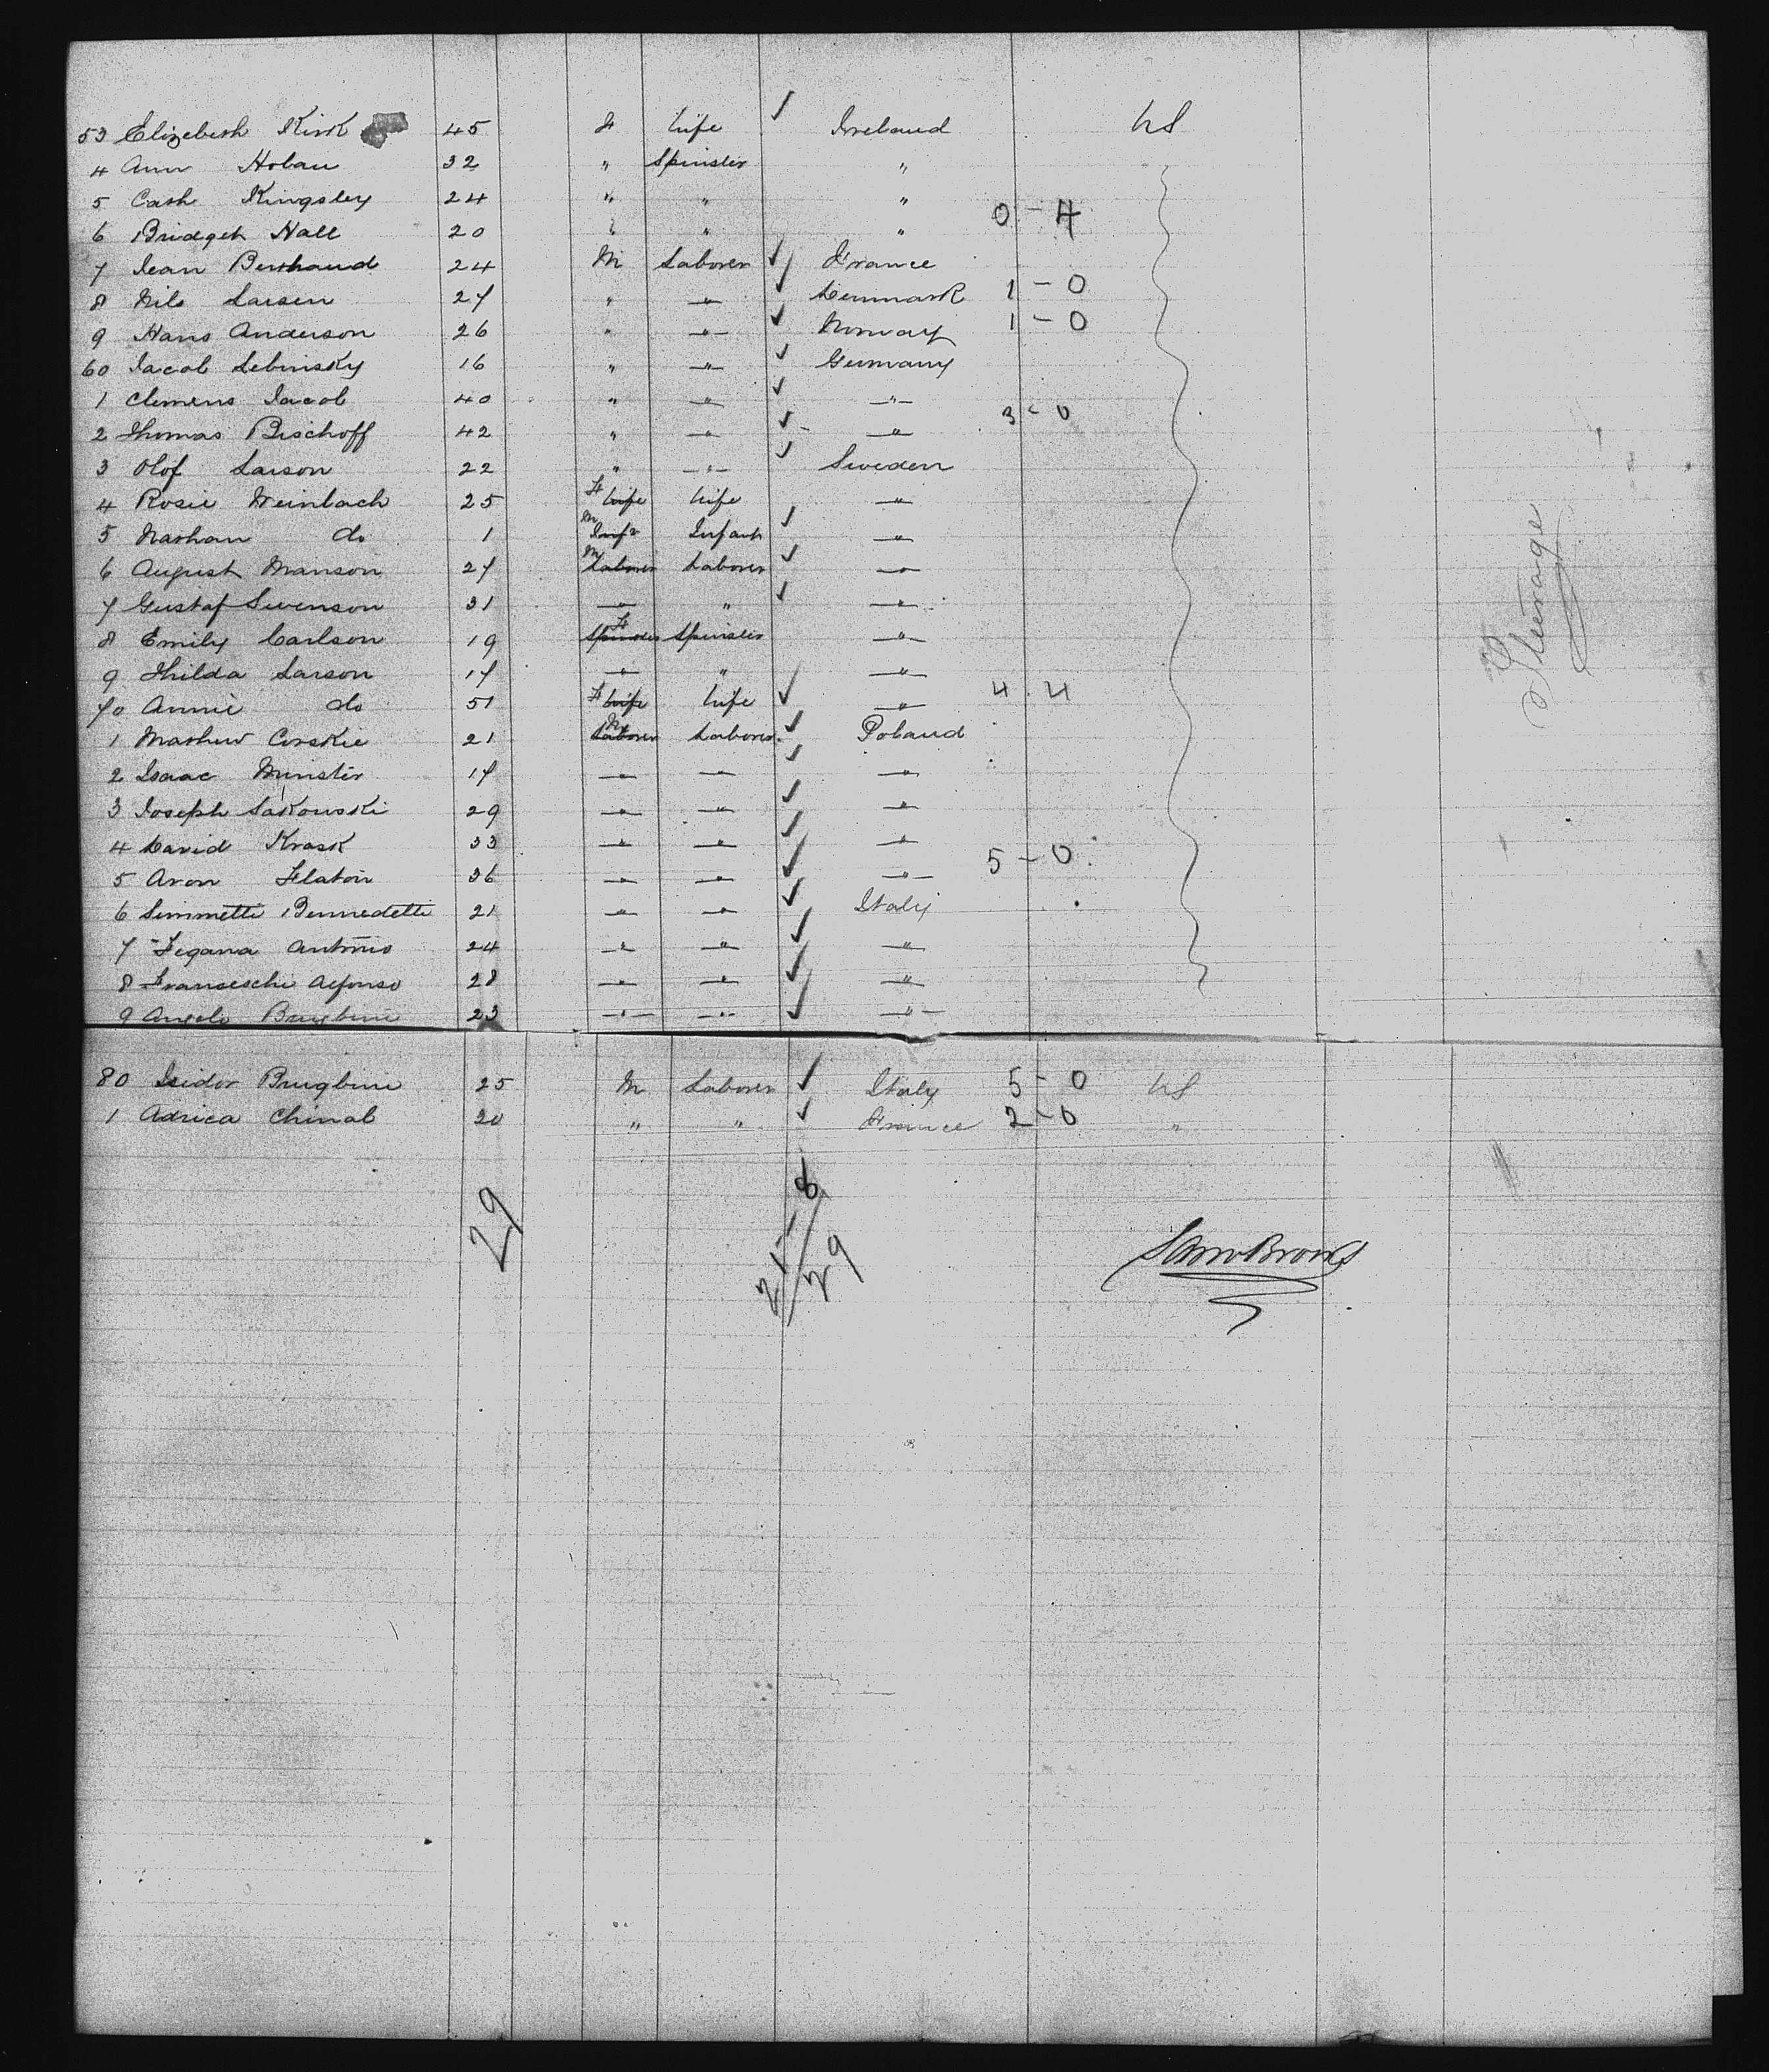 53 Elizebeth Kirk 45 F Wife ✓ Ireland US
4 Ann Hoban 32 " Spinster "
5 Cath Kingsley 24 " " "
6 Bridget Hall 20 " " " 0 - 4
7 Jean Berthaud 24 M Laborer ✓ France
8 Nils Larsen 27 " " ✓ Denmark 1 - 0
9 Hans Anderson 26 " " ✓ Norway 1 - 0
60 Jacob Lebinsky 16 " " ✓ Germany
1 Clemens Jacob 40 " " ✓ "
2 Thomas Bischoff 42 " " ✓ " 3 - 0
3 Olof Larson 22 " " ✓ Sweden
4 Rosie Weinbach 25 F Wife Wife "
5 Nathan do 1 M Inft Infant ✓ "
6 August Manson 27 M Laborer Laborer ✓ "
7 Gustaf Swenson 31 " " ✓ "
8 Emily Carlson 19 F Spinster Spinster "
9 Hilda Larson 17 " " "
70 Annie do 51 F Wife Wife ✓ " 4 4
1 Mathew Corskie 21 M Laborer Laborer ✓ Poland
2 Isaac Minster 17 " " ✓ "
3 Joseph Sakouski 29 " " ✓ "
4 David Krask 33 " " ✓ "
5 Aron 36 " " ✓ " 5 - 0
6 Simmetti Bennedetti 21 " " ✓ Italy
7 Fegana Antonio 24 " " ✓ "
8 Franseschi Alfonso 28 " " ✓ "
9 Angelo Brugbini 23 " " ✓ "
Steerage
80 Isidor Brugbini 25 M Laborer ✓ Italy 5 - 0 US
1 Adrica Chinal 20 " " ✓ France 2 - 0 "
29
21 - 8
29